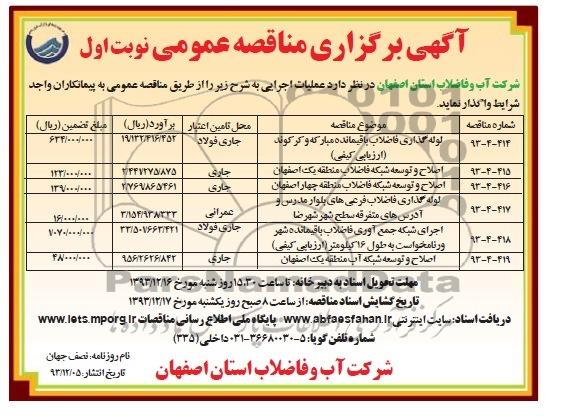 آگهی برگزاری مناقصه عمومی نوبت اول
شرکت آب وفاضلاب استان اصفهان در نظر دارد عملیات اجرایی به شرح زیر را از طریق مناقصه عمومی به پیمانکاران واجد
شرایط واگذار نماید.
شماره مناقصه موضوع مناقصه محل تامین اعتبار برآورد(ریال) مبلغ تضمین (ریال)
۹۳-۴-۴۱۴ لوله گذاری فاضلاب باقیمانده مبارکه و کرکوند (ارزیابی کیفی) جاری فولاد ۱۹/۱۳۲/۴۱۶/۴۵۲ ۶۳۴/۰۰۰/۰۰۰
۹۳-۴-۴۱۵ اصلاح و توسعه شبکه فاضلاب منطقه یک اصفهان جاری ۲/۴۴۷۲۷۵/۸۷۵ ۱۲۳/۰۰۰/۰۰۰
۹۳-۴-۴۱۶ اصلاح و توسعه شبکه فاضلاب منطقه چهار اصفهان جاری ۲/۷۶۹/۸۶۵/۴۶۱ ۱۳۹/۰۰۰/۰۰۰
۹۳-۴-۴۱۷ لوله گذاری فاضلاب فرعی های بلوار مدرس و آدرس های متفرقه سطح شهر شهرضا عمرانی ۳/۱۵۴/۹۳۸/۳۳۳ ۱۶/۰۰۰/۰۰۰
۹۳-۴-۴۱۸ اجرای شبکه جمع آوری فاضلاب باقیمانده شهر ورنامخواست به طول ۱۶ کیلومتر (ارزیابی کیفی) جاری فولاد ۳۳/۵۰۷۶۶۳/۴۲۱ ۱/۰۷۰/۰۰۰/۰۰۰
۹۳-۴-۴۱۹ اصلاح و توسعه شبکه آب منطقه یک اصفهان جاری ۹۵۶/۲۶۲۶/۸۴۲ ۴۸/۰۰۰/۰۰۰
مهلت تحویل اسناد به دبیرخانه: تا ساعت ۱۵:۳۰ روز شنبه مورخ ۱۳۹۳/۱۲/۱۶
تاریخ گشایش اسناد مناقصه: از ساعت ۸ صبح روز یکشنبه مورخ ۱۳۹۳/۱۲/۱۷
دریافت اسناد: سایت اینترنتی www.abfaesfahan.ir پایگاه ملی اطلاع رسانی مناقصات www.iets.mporg.ir
شماره تلفن گویا: ۵-۳۶۶۸۰۰۳۰-۰۳۱ داخلی (۳۳۵)
شرکت آب وفاضلاب استان اصفهان
نام روزنامه: نصف جهان
تاریخ انتشار: ۹۳/۱۲/۰۵
ParsNamadData